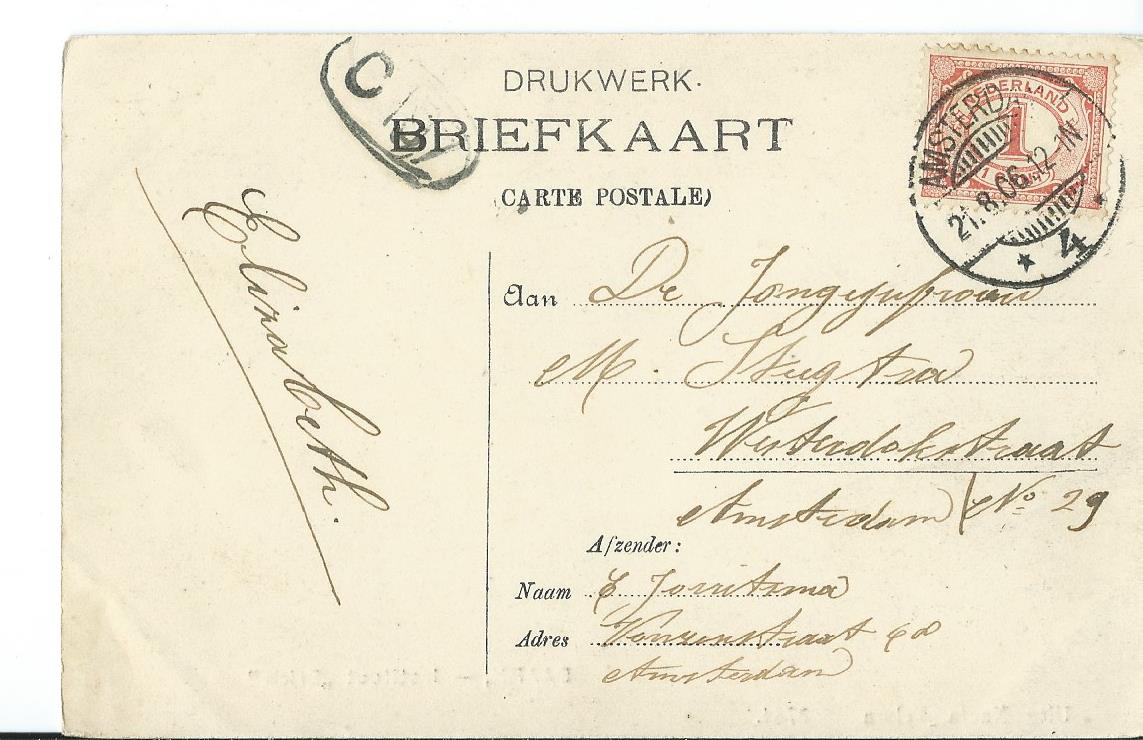 C
DRUKWERK.
BRIEFKAART
CARTE POSTALE)
NEDERLAND
1
AMSTERDA
21.8.06.12-1N
4
Elizabeth.
Aan De Jongejufrouw
M. Stiegstra
Westerdokstraat
Amsterdam No 29
Afzender:
Naam E Jorritsma
Adres
Amsterdam